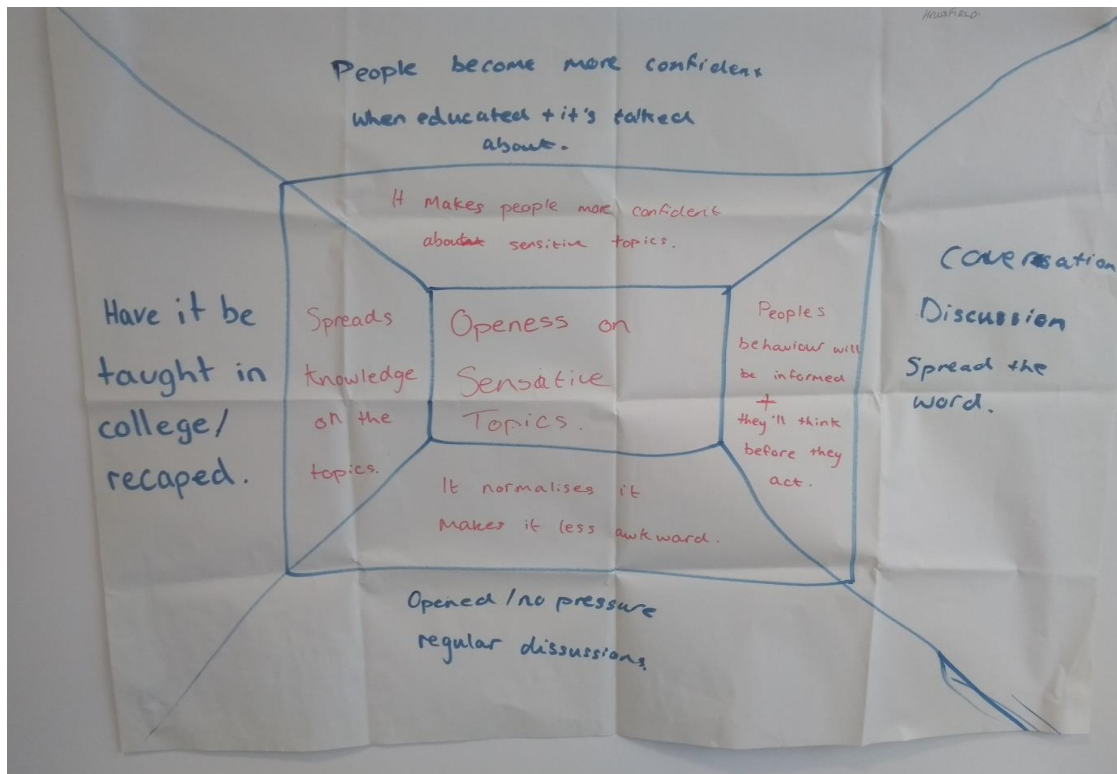 People become more confident
when educated + it's talked
about.
It Makes people more confident
about sensitive topics.
Have it be
taught in
college/
recaped.
Spreads
knowledge
on the
topics.
Openess on
Sensative
Topics.
Peoples
behaviour will
be informed
+
they'll think
before they
act.
Coversation
Discussion
Spread the
word.
It normalises it
Makes it less awkward.
Opened/no pressure
regular dissussions.